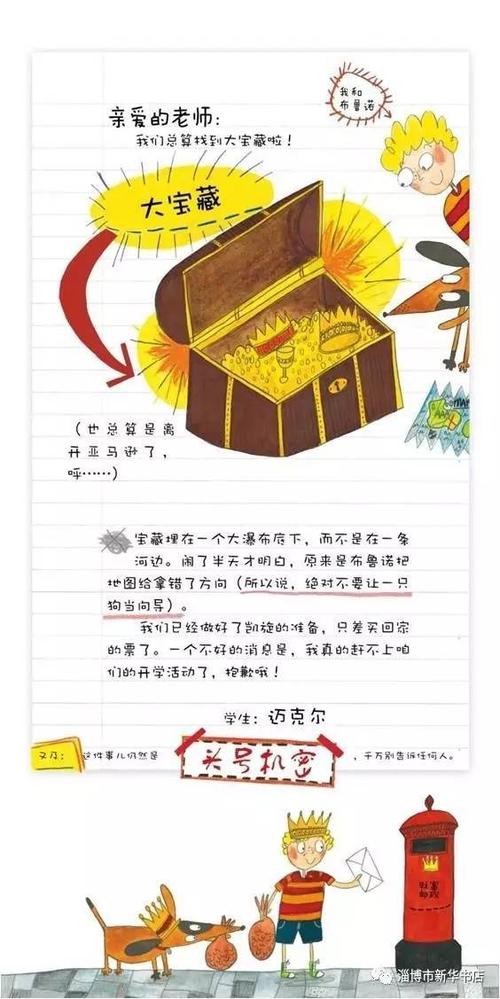 我和
布鲁诺
亲爱的老师：
我们总算找到大宝藏啦！
大宝藏
（也总算是离
开亚马逊了，
呼……）
宝藏埋在一个大瀑布底下，而不是在一条
河边。闹了半天才明白，原来是布鲁诺把
地图给拿错了方向（所以说，绝对不要让一只
狗当向导）。
我们已经做好了凯旋的准备，只差买回家
的票了。一个不好的消息是，我真的赶不上咱
们的开学活动了，抱歉哦！
学生：迈克尔
又及：这件事儿仍然是 头号机密 ，千万别告诉任何人。
淄博市新华书店